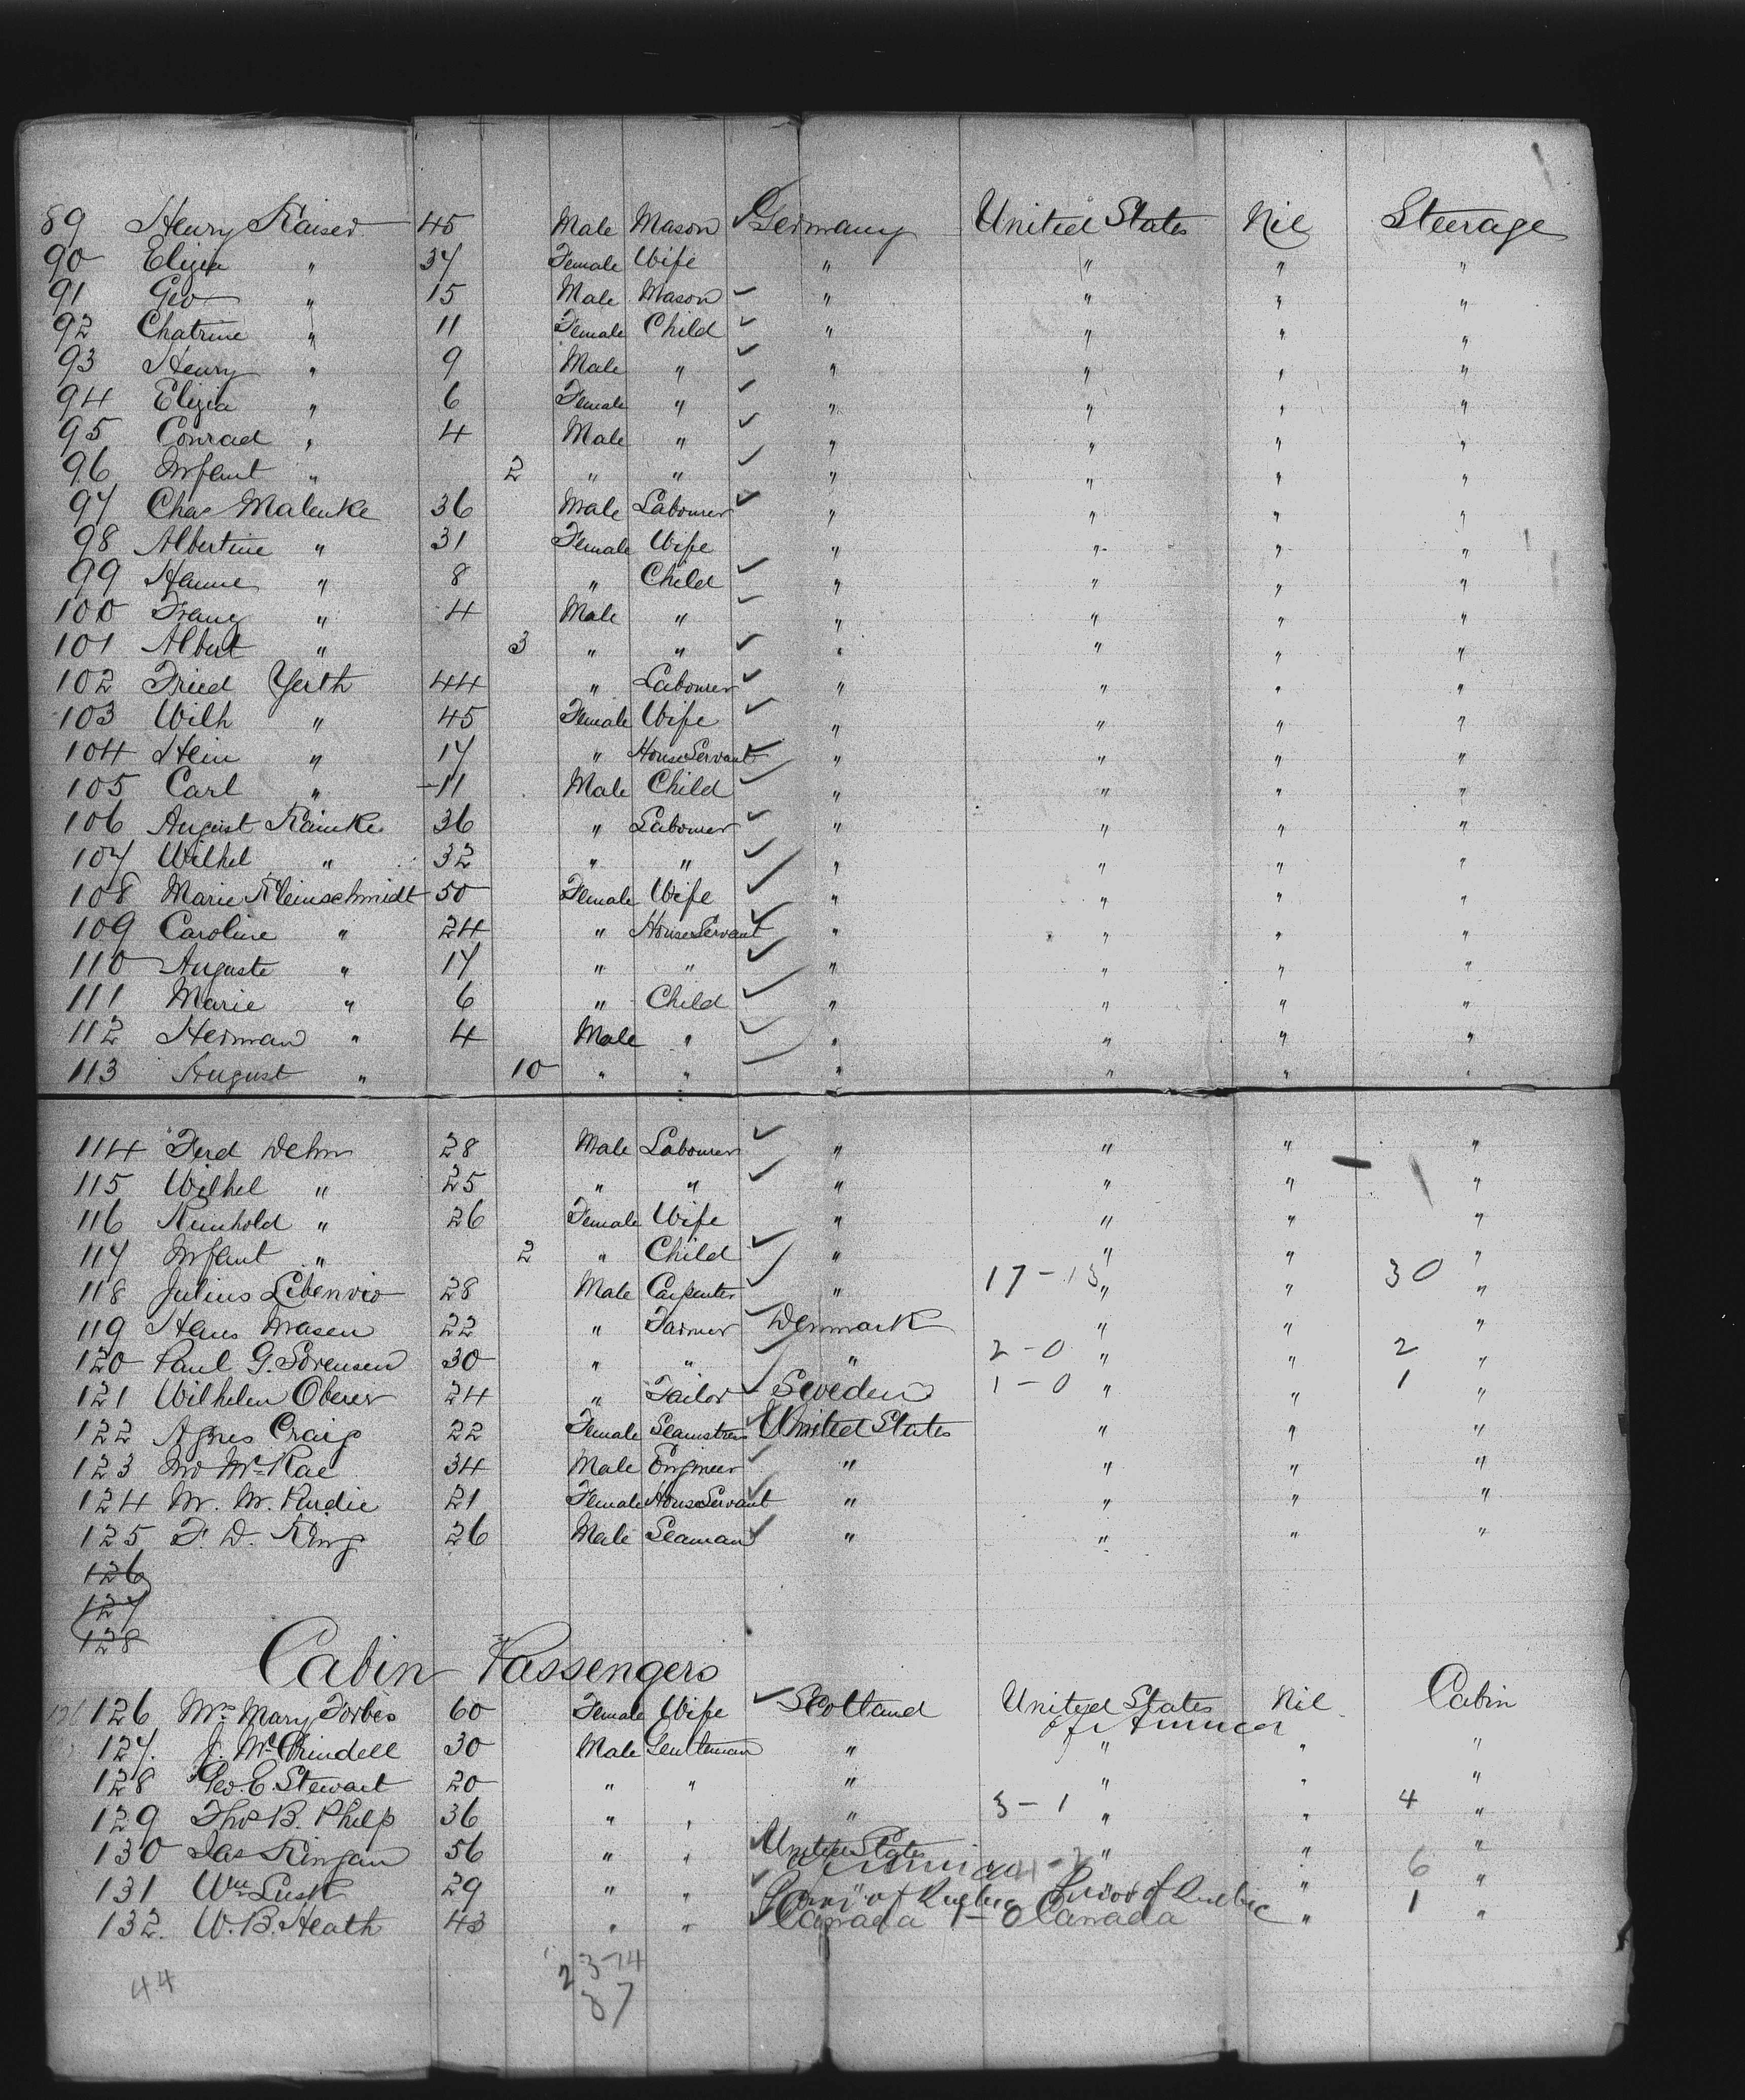 89 Henry Kaiser 45 Male Mason ✓ Germany United States Nil Steerage
90 Eliza " 34 Female Wife " " " "
91 Geo " 15 Male Mason ✓ " " " "
92 Chatrine " 11 Female Child ✓ " " " "
93 Henry " 9 Male " ✓ " " " "
94 Eliza " 6 Female " ✓ " " " "
95 Conrad " 4 Male " ✓ " " " "
96 Infant " 2 " " ✓ " " " "
97 Chas Malenke 36 Male Labourer ✓ " " " "
98 Albertine " 31 Female Wife " " " "
99 Hanne " 8 " Child ✓ " " " "
100 Franz " 4 Male " ✓ " " " "
101 Albert " 3 " " ✓ " " " "
102 Fried Yerth 44 " Labourer ✓ " " " "
103 Wilh " 45 Female Wife ✓ " " " "
104 Hein " 17 " House Servant ✓ " " " "
105 Carl " 11 Male Child ✓ " " " "
106 August Rainke 36 " Labourer ✓ " " " "
107 Wilhel " 32 " " ✓ " " " "
108 Marie Kleinschmidt 50 Female Wife ✓ " " " "
109 Caroline " 24 " House Servant ✓ " " " "
110 Auguste " 17 " " ✓ " " " "
111 Marie " 6 " Child ✓ " " " "
112 Herman " 4 Male " ✓ " " " "
113 August " 10 " " ✓ " " " "
114 Ferd Dehn 28 Male Labourer ✓ " " " "
115 Wilhel " 25 " " ✓ " " " "
116 Reinhold " 26 Female Wife " " " "
117 Infant " 2 " Child ✓ " " " "
118 Julius 28 Male Carpenter ✓ " 17-13 " " 30 "
119 Hans Masen 22 " Farmer ✓ Denmark " " "
120 Paul G. Sorensen 30 " " ✓ " 2-0 " " 2 "
121 Wilhelm Oberer 24 " Tailor ✓ Sweden 1-0 " " 1 "
122 Agnes Craig 22 Female Seamstress ✓ United States " " "
123 Jno McRae 34 Male Engineer ✓ " " " "
124 M. M. 21 Female House Servant ✓ " " " "
125 F. D. King 26 Male Seaman ✓ " " " "
126
127
128
Cabin Passengers
126 126 Mrs Mary Forbes 60 Female Wife ✓ Scotland United States Nil Cabin
of America
127. J. McCrindell 30 Male Gentleman " " " "
128 Geo. E. Stewart 20 " " " " " "
129 Thos B. Philp 36 " " " 3-1 " " 4 "
130 Jas Ringan 56 " " ✓ United States " " "
of America 4-2 6
131 Wm Lusk 29 " " ✓ " " " "
Prov of Quebec Prov of Quebec
132. W. B. Heath 43 " " ✓ Canada 1-0 Canada " 1 "
44
2 3-74
87